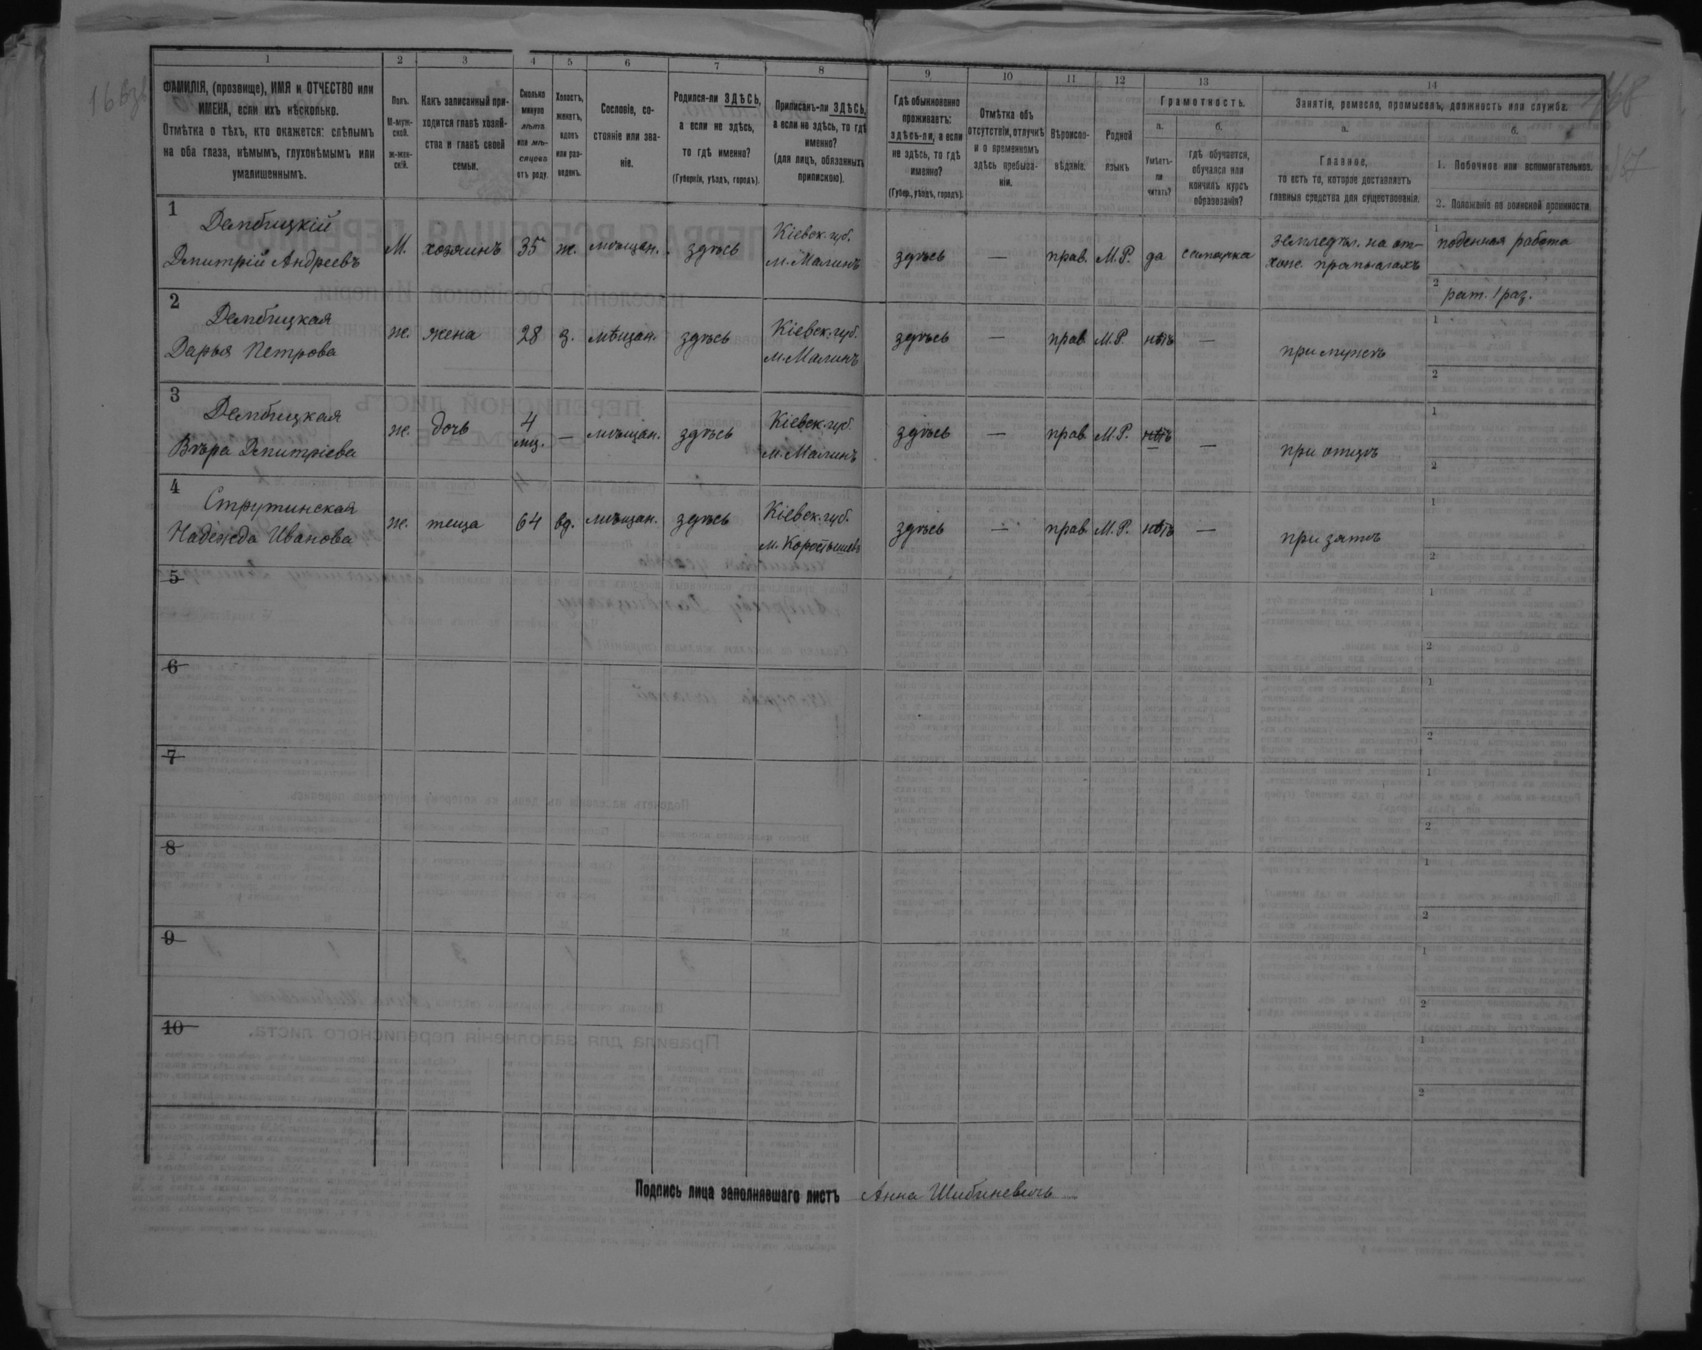 1 2 3 4 5 6 7 8 9 10 11 12 13 14
ФАМИЛІЯ, (прозвище), ИМЯ и ОТЧЕСТВО или
ИМЕНА, если ихъ нѣсколько.
Отмѣтка о тѣхъ, кто окажется: слѣпымъ
на оба глаза, нѣмымъ, глухонѣмымъ или
умалишеннымъ.
Полъ.
М-муж-
ской.
Ж-жен-
скій.
Какъ записанный при-
ходится главѣ хозяй-
ства и главѣ своей
семьи.
Сколько
минуло
лѣтъ
или мѣ-
сяцевъ
отъ роду.
Холостъ,
женатъ,
вдовъ
или раз-
веденъ.
Сословіе, со-
стояніе или зва-
ніе.
Родился-ли ЗДѢСЬ,
а если не здѣсь,
то гдѣ именно?
(Губернія, уѣздъ, городъ).
Приписанъ-ли ЗДѢСЬ,
а если не здѣсь, то гдѣ
именно?
(для лицъ, обязанныхъ
припискою).
Гдѣ обыкновенно
проживаетъ:
здѣсь-ли, а если
не здѣсь, то гдѣ
именно?
(Губер., уѣздъ, городъ).
Отмѣтка объ
отсутствіи, отлучкѣ
и о временномъ
здѣсь пребыва-
ніи.
Вѣроиспо-
вѣданіе.
Родной
языкъ
Грамотность.
а.
Умѣетъ-
ли
читать?
б.
гдѣ обучается,
обучался или
кончилъ курсъ
образованія?
Занятіе, ремесло, промыселъ, должность или служба.
а.
Главное,
то есть то, которое доставляетъ
главныя средства для существованія.
б.
1. Побочное или вспомогательное.
2. Положеніе по воинской повинности.
1 Дембицкій
Дмитрій Андреевъ М. хозяинъ 35 ж. мѣщан. здѣсь Кіевск. губ. м. Малинъ здѣсь — прав. М.Р. да
1 поденная работа
2 рат. 1 раз.
2 Дембицкая
Дарья Петрова ж. жена 28 з. мѣщан. здѣсь Кіевск. губ. м. Малинъ здѣсь — прав. М.Р. нѣтъ — при мужѣ
1
2
3 Дембицкая
Вѣра Дмитріева ж. дочь 4 мц. — мѣщан. здѣсь Кіевск. губ. м. Малинъ здѣсь — прав. М.Р. нѣтъ — при отцѣ
1
2
4 Струтинская
Надежда Иванова ж. теща 64 вд. мѣщан. здѣсь Кіевск. губ. м. Коростышевъ здѣсь — прав. М.Р. нѣтъ — при зятѣ
1
2
5
1
2
6
1
2
7
1
2
8
1
2
9
1
2
10
1
2
Подпись лица заполнявшаго листъ Анна